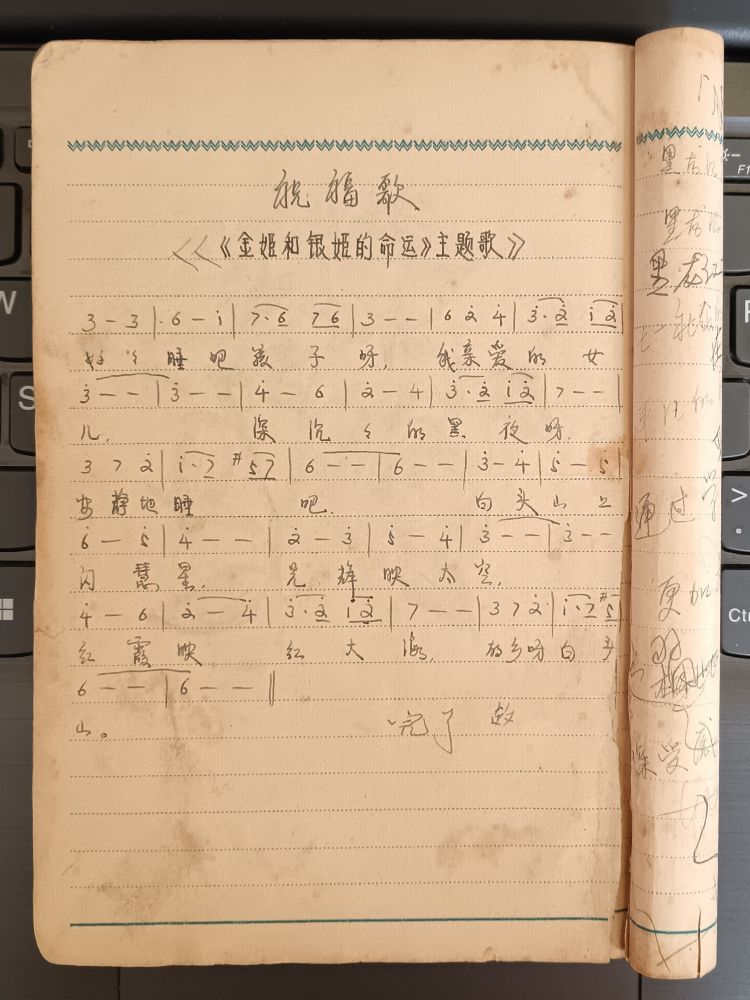 祝福歌
《《金姬和银姬的命运》主题歌》
3 — 3 | 6 — i | 7·6 7 6 | 3 — — | 6 2̇ 4̇ | 3̇·2̇ i 2̇ |
好好睡吧孩子呀，我亲爱的女
3̇ — — | 3̇ — — | 4̇ — 6 | 2̇ — 4 | 3̇·2̇ i 2̇ | 7 — — |
儿，深沉沉的黑夜呀，
3 7 2̇ | i·7 #5 7 | 6 — — | 6 — — | 3̇ — 4̇ | 5̇ — 5̇ |
安静地睡吧，白头山上
6̇ — 5̇ | 4̇ — — | 2̇ — 3̇ | 5̇ — 4̇ | 3̇ — — | 3̇ — —
闪慧星，光辉映太空，
4̇ — 6 | 2̇ — 4̇ | 3̇·2̇ i 2̇ | 7 — — | 3 7 2̇ | i·7 #5
红霞映红大海，故乡呀白头
6 — — | 6 — — ‖
山。完了
黑
黑
黑
通过
更加
深受